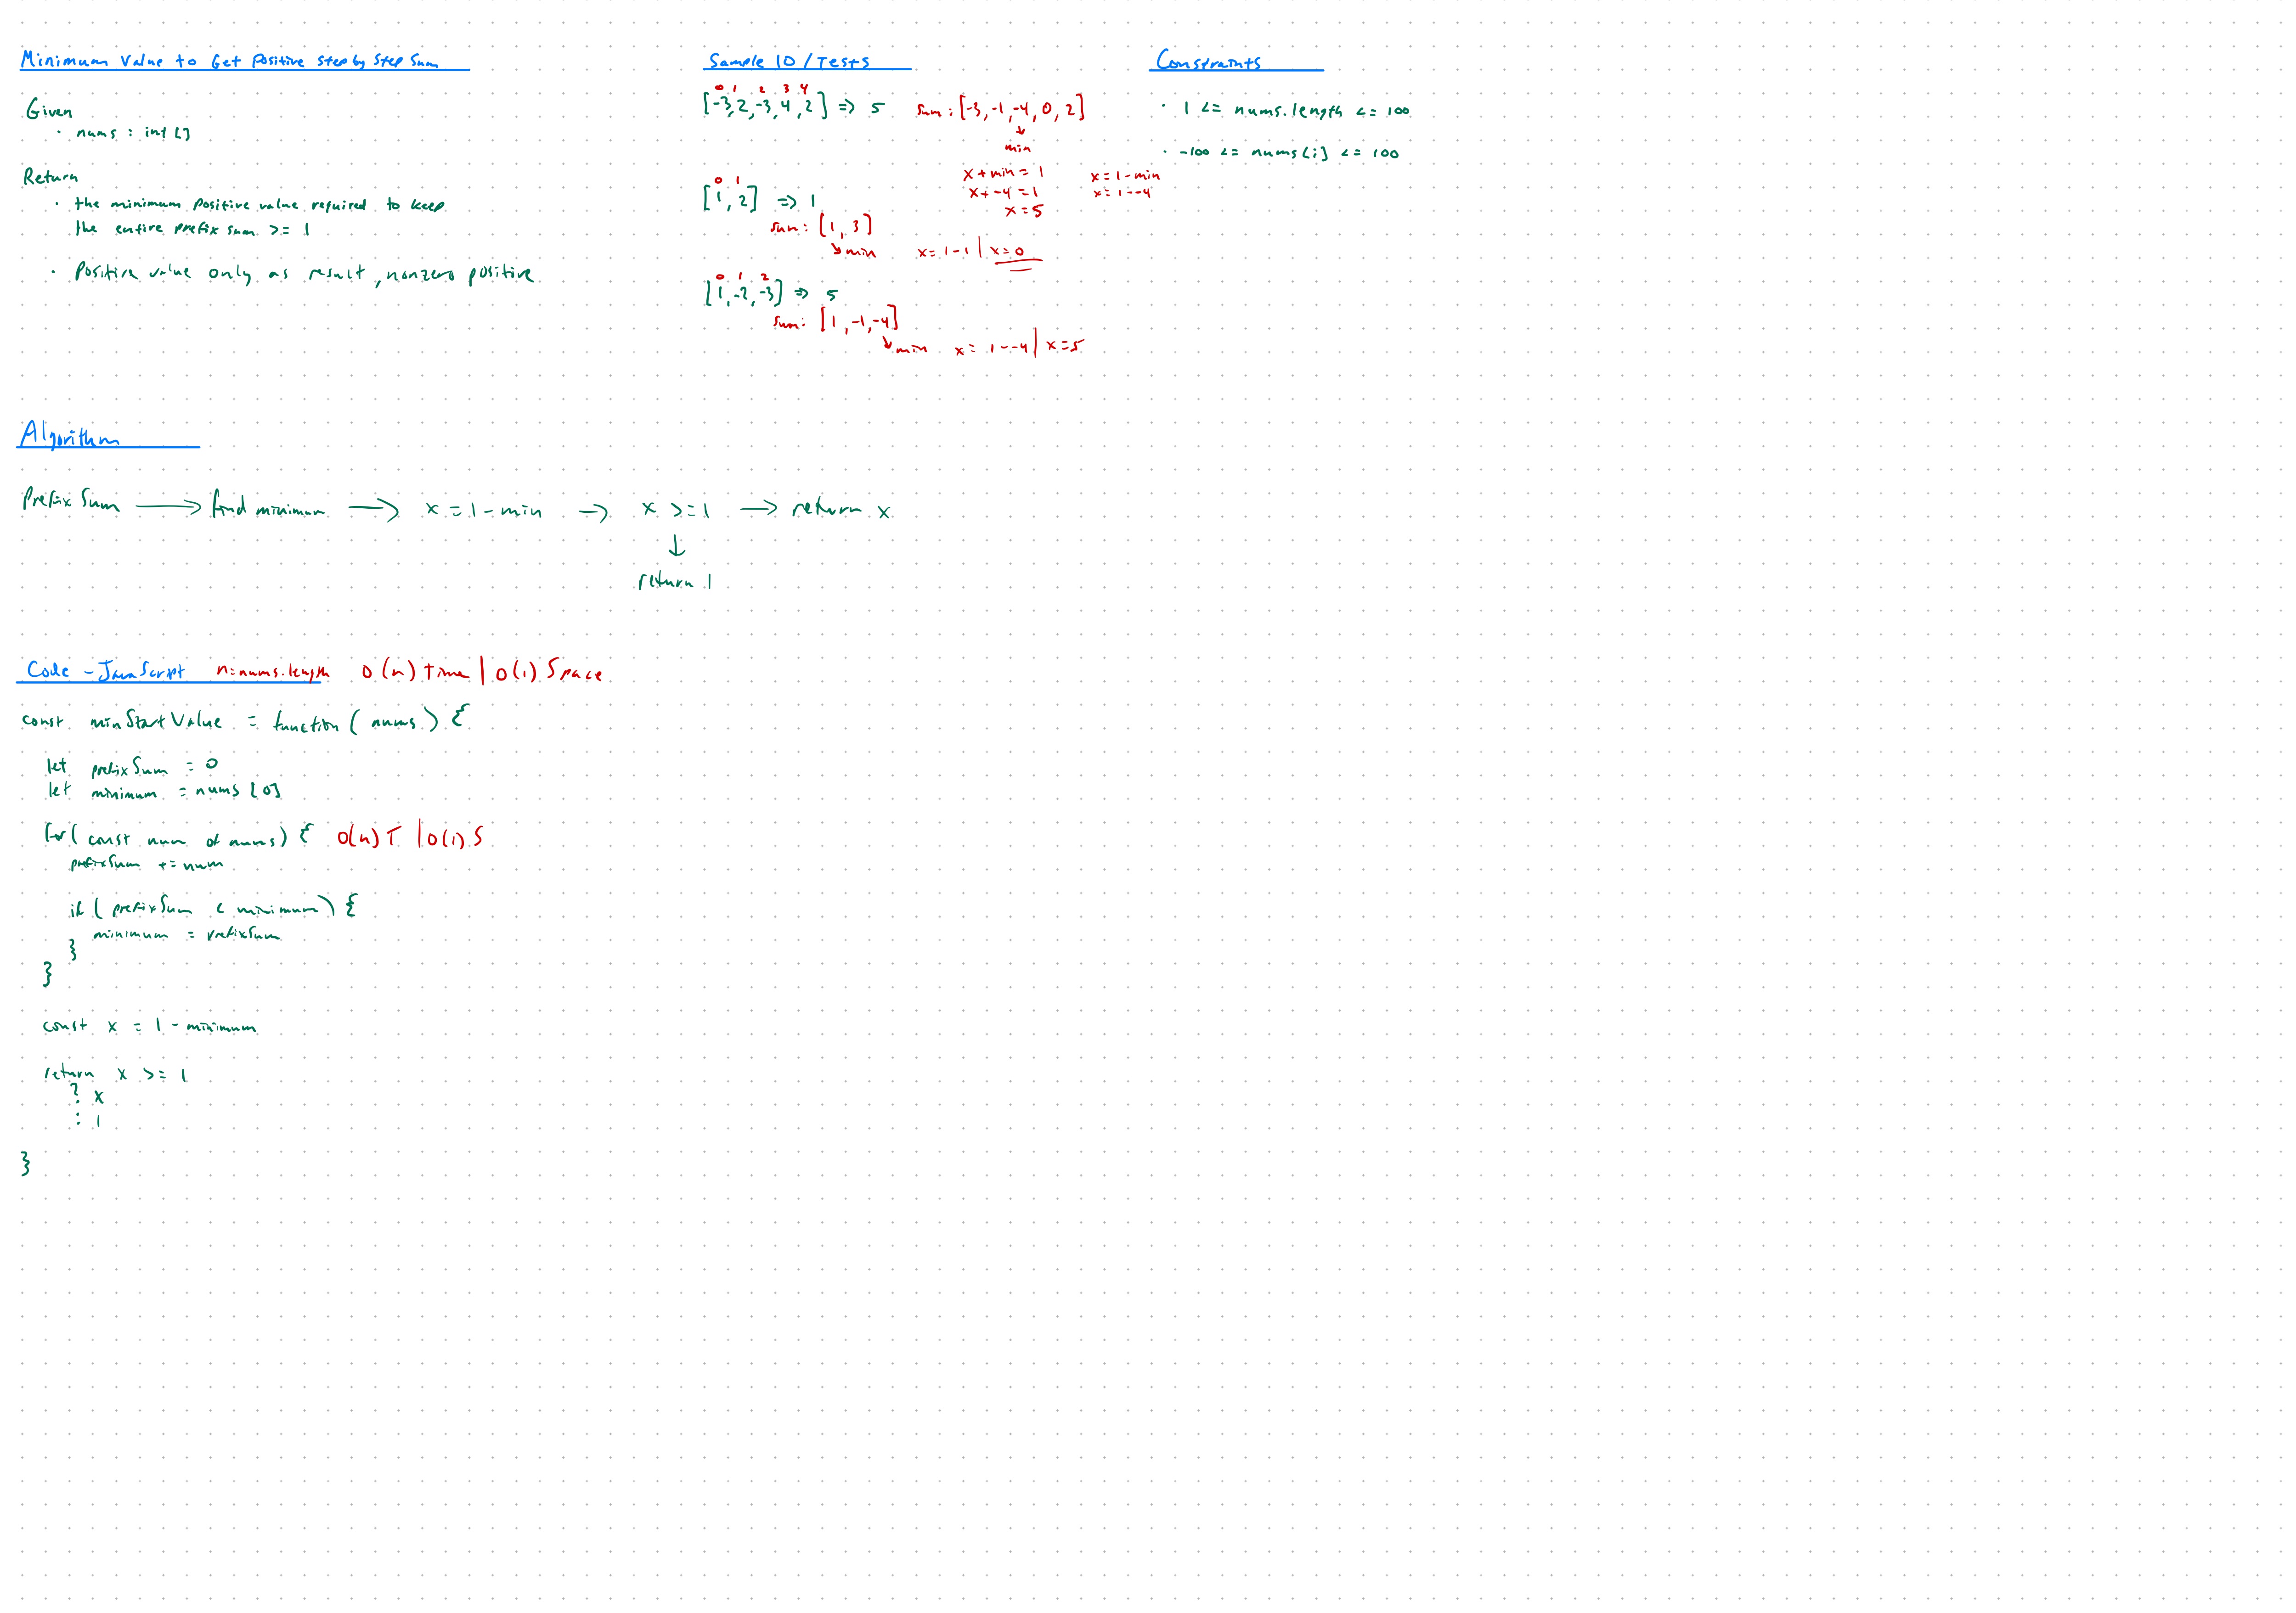 Minimum Value to Get Positive Step by Step Sum
Given
· nums : int []
Return
· the minimum positive value required to keep
the entire prefix sum >= 1
· Positive value only as result, nonzero positive
Sample IO / Tests
0 1 2 3 4
[-3, 2, -3, 4, 2] => 5 sum: [-3, -1, -4, 0, 2]
↓
min
x + min = 1 x = 1 - min
x + -4 = 1 x = 1 - -4
x = 5
0 1
[1, 2] => 1
sum: [1, 3]
↘ min x = 1 - 1 | x = 0
0 1 2
[1, -2, -3] => 5
sum: [1, -1, -4]
↘ min x = 1 - -4 | x = 5
Constraints
· 1 <= nums.length <= 100
· -100 <= nums[i] <= 100
Algorithm
Prefix Sum → find minimum → x = 1 - min → x >= 1 → return x
↓
return 1
Code - JavaScript n = nums.length O(n) Time | O(1) Space
const minStartValue = function(nums) {
let prefixSum = 0
let minimum = nums[0]
for(const num of nums) { O(n) T | O(1) S
prefixSum += num
if (prefixSum < minimum) {
minimum = prefixSum
}
}
const x = 1 - minimum
return x >= 1
? x
: 1
}